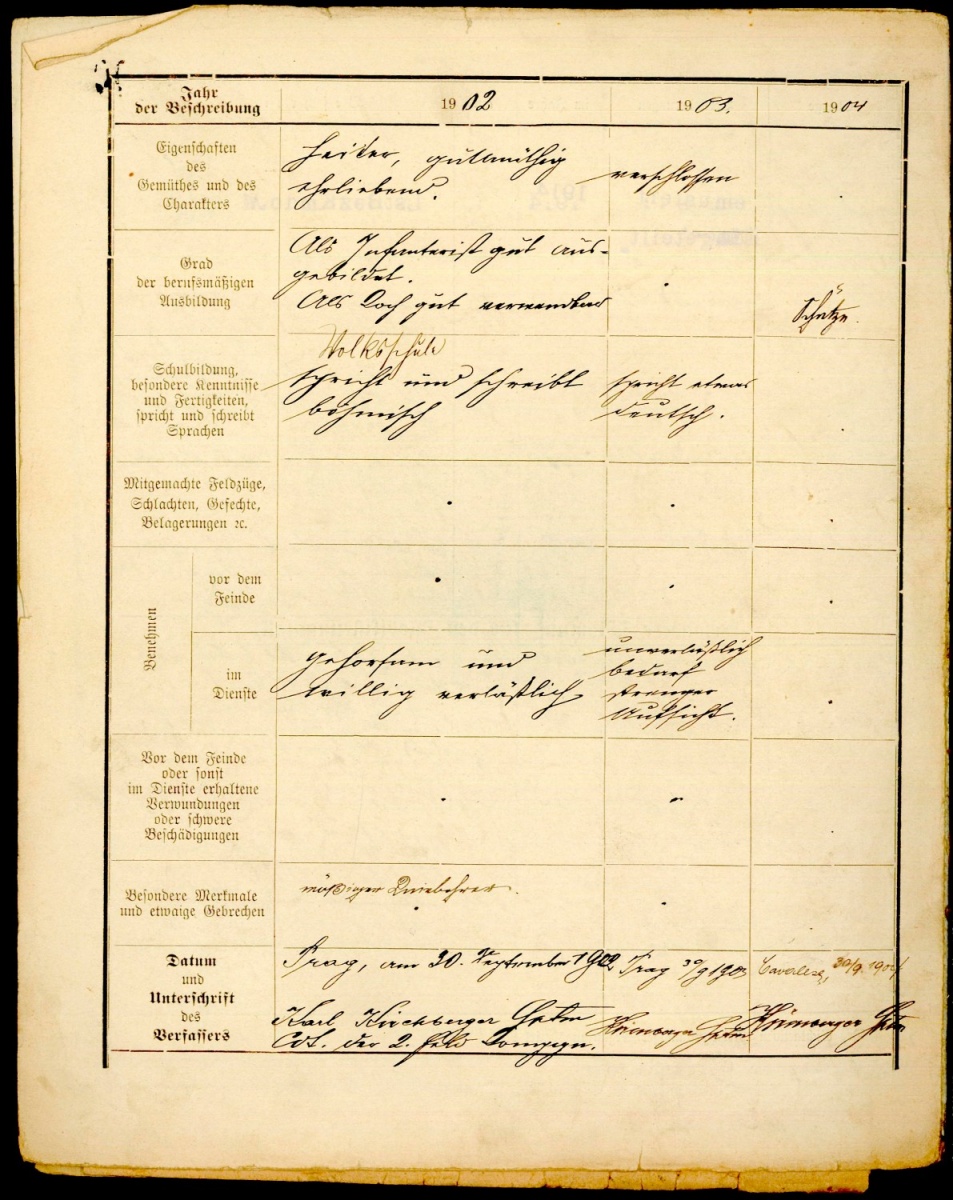 Jahr
der Beschreibung
1902
1903.
1904
Eigenschaften
des
Gemüthes und des
Charakters
heiter, gutmüthig
ehrliebend.
verschlossen
.
Grad
der berufsmäßigen
Ausbildung
Als Infanterist gut aus-
gebildet.
Als Koch gut verwendbar
.
Schütze.
Schulbildung,
besondere Kenntnisse
und Fertigkeiten,
spricht und schreibt
Sprachen
Volksschule
spricht und schreibt
böhmisch
spricht etwas
deutsch.
.
Mitgemachte Feldzüge,
Schlachten, Gefechte,
Belagerungen ꝛc.
.
.
.
Benehmen
vor dem
Feinde
.
.
.
im
Dienste
gehorsam und
willig verläßlich
unverläßlich
bedarf
strenger
Aufsicht.
.
Vor dem Feinde
oder sonst
im Dienste erhaltene
Verwundungen
oder schwere
Beschädigungen
.
.
.
Besondere Merkmale
und etwaige Gebrechen
mäßiger
.
.
Datum
und
Unterschrift
des
Verfassers
Prag, am 30. September 1902
Karl Kirchberger Hptm
Cdt. der 2. Feld Compagn.
Prag 30/9 1903
Hptm
Cavalese, 30/9. 1904
Hptm